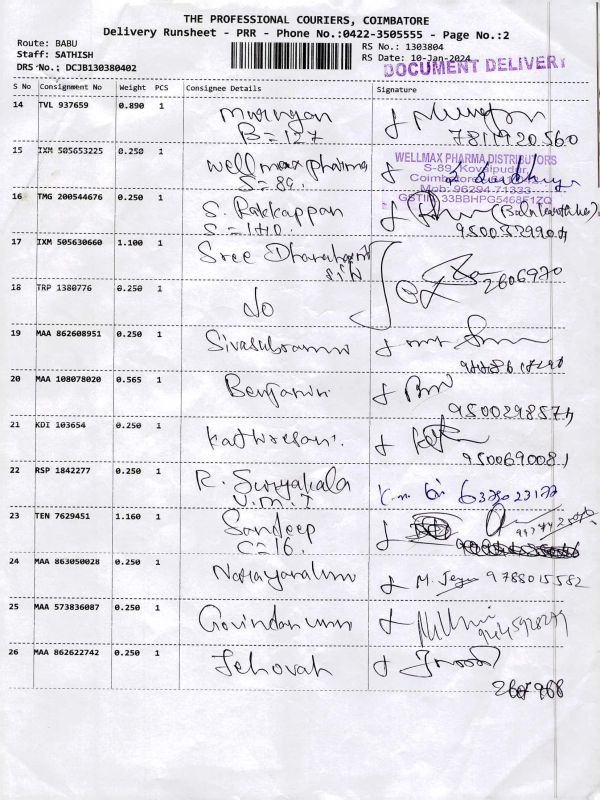 THE PROFESSIONAL COURIERS, COIMBATORE
Delivery Runsheet - PRR - Phone No.:0422-3505555 - Page No.:2
Route: BABU
Staff: SATHISH
DRS No.: DCJB130380402
RS No.: 1303804
RS Date: 10-Jan-2024
DOCUMENT DELIVERY
S No Consignment No Weight PCS Consignee Details Signature
14 TVL 937659 0.890 1 Murugan
B=127 7811920560
15 IXM 505653225 0.250 1 wellmax pharma
S=89.
WELLMAX PHARMA DISTRIBUTORS
S-89, Kovaipudur,
Coimbatore
Mob: 96294 71333
GSTIN: 33BBHPG5468F1ZQ
16 TMG 200544676 0.250 1 S. Rakkappan
S=140. 9500529904
17 IXM 505630660 1.100 1 Sree Dharshanin
2606970
18 TRP 1380776 0.250 1 do
19 MAA 862608951 0.250 1 Sivasubramani
20 MAA 108078020 0.565 1 Benjamin
9500298574
21 KDI 103654 0.250 1 Kathiresan.
9500690081
22 RSP 1842277 0.250 1 R. Suryakala
V.M.T 6379023177
23 TEN 7629451 1.160 1 Sandeep
C=16.
24 MAA 863050028 0.250 1 Narayanan M. Jeya 9788015582
25 MAA 573836087 0.250 1 Govindan
26 MAA 862622742 0.250 1 Jehovah